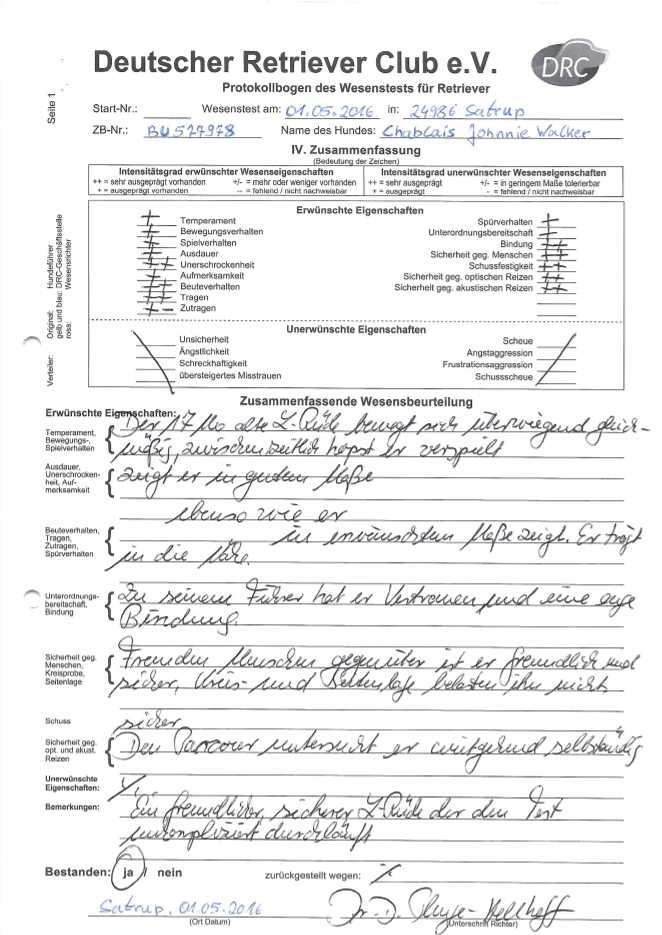 Deutscher Retriever Club e.V.
DRC
Protokollbogen des Wesenstests für Retriever
Seite 1
Start-Nr.: Wesenstest am: 01.05.2016 in: 24986 Satrup
ZB-Nr.: BU527978 Name des Hundes: Chablais Johnnie Walker
IV. Zusammenfassung
(Bedeutung der Zeichen)
Intensitätsgrad erwünschter Wesenseigenschaften Intensitätsgrad unerwünschter Wesenseigenschaften
++ = sehr ausgeprägt vorhanden +/- = mehr oder weniger vorhanden ++ = sehr ausgeprägt +/- = in geringem Maße tolerierbar
+ = ausgeprägt vorhanden -- = fehlend / nicht nachweisbar + = ausgeprägt - = fehlend / nicht nachweisbar
Erwünschte Eigenschaften
+ Temperament Spürverhalten +
+ Bewegungsverhalten Unterordnungsbereitschaft +
+ Spielverhalten Bindung ++
+ Ausdauer Sicherheit geg. Menschen ++
++ Unerschrockenheit Schussfestigkeit ++
+ Aufmerksamkeit Sicherheit geg. optischen Reizen ++
++ Beuteverhalten Sicherheit geg. akustischen Reizen ++
++ Tragen
+- Zutragen
Unerwünschte Eigenschaften
Unsicherheit Scheue
Ängstlichkeit Angstaggression
Schreckhaftigkeit Frustrationsaggression
übersteigertes Misstrauen Schussscheue
Verteiler: Original: Hundeführer
gelb und blau: DRC-Geschäftsstelle
rosa: Wesensrichter
Zusammenfassende Wesensbeurteilung
Erwünschte Eigenschaften:
Temperament, Bewegungs-, Spielverhalten
Der 17 Mo alte L-Rüde bewegt sich überwiegend gleich-
mäßig, zwischenzeitlich hopst er verspielt
Ausdauer, Unerschrockenheit, Aufmerksamkeit
zeigt er in gutem Maße
ebenso wie er
Beuteverhalten, Tragen, Zutragen, Spürverhalten
in erwünschtem Maße zeigt. Er trägt
in die Nähe.
Unterordnungsbereitschaft, Bindung
Zu seinem Führer hat er Vertrauen und eine enge
Bindung.
Sicherheit geg. Menschen, Kreisprobe, Seitenlage
Fremden Menschen gegenüber ist er freundlich und
sicher, Kreis- und Seitenlage belasten ihn nicht
Schuss
sicher
Sicherheit geg. opt. und akust. Reizen
Den Parcour untersucht er weitgehend selbständig
Unerwünschte Eigenschaften:
Bemerkungen:
Ein freundlicher, sicherer L-Rüde der den Test
unkompliziert durchläuft
Bestanden: ja / nein zurückgestellt wegen:
Satrup, 01.05.2016
(Ort Datum) (Unterschrift Richter)